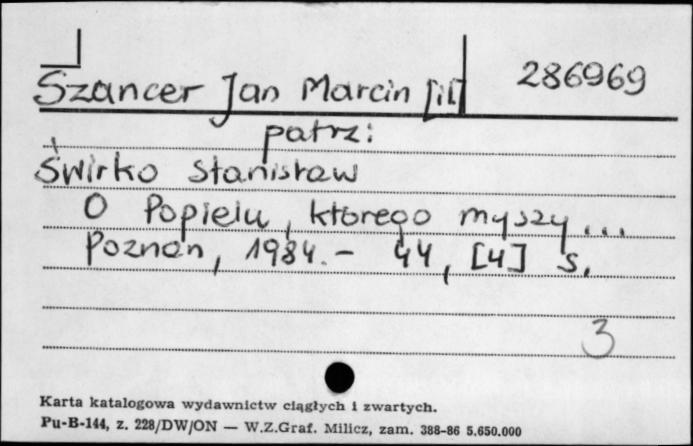 Szancer Jan Marcin [il] 286969
patrz:
Świrko Stanisław
O Popielu, którego myszy...
Poznań, 1984. - 44, [4] s.
3
Karta katalogowa wydawnictw ciągłych i zwartych.
Pu-B-144, z. 228/DW/ON — W.Z.Graf. Milicz, zam. 388-86 5.650.000